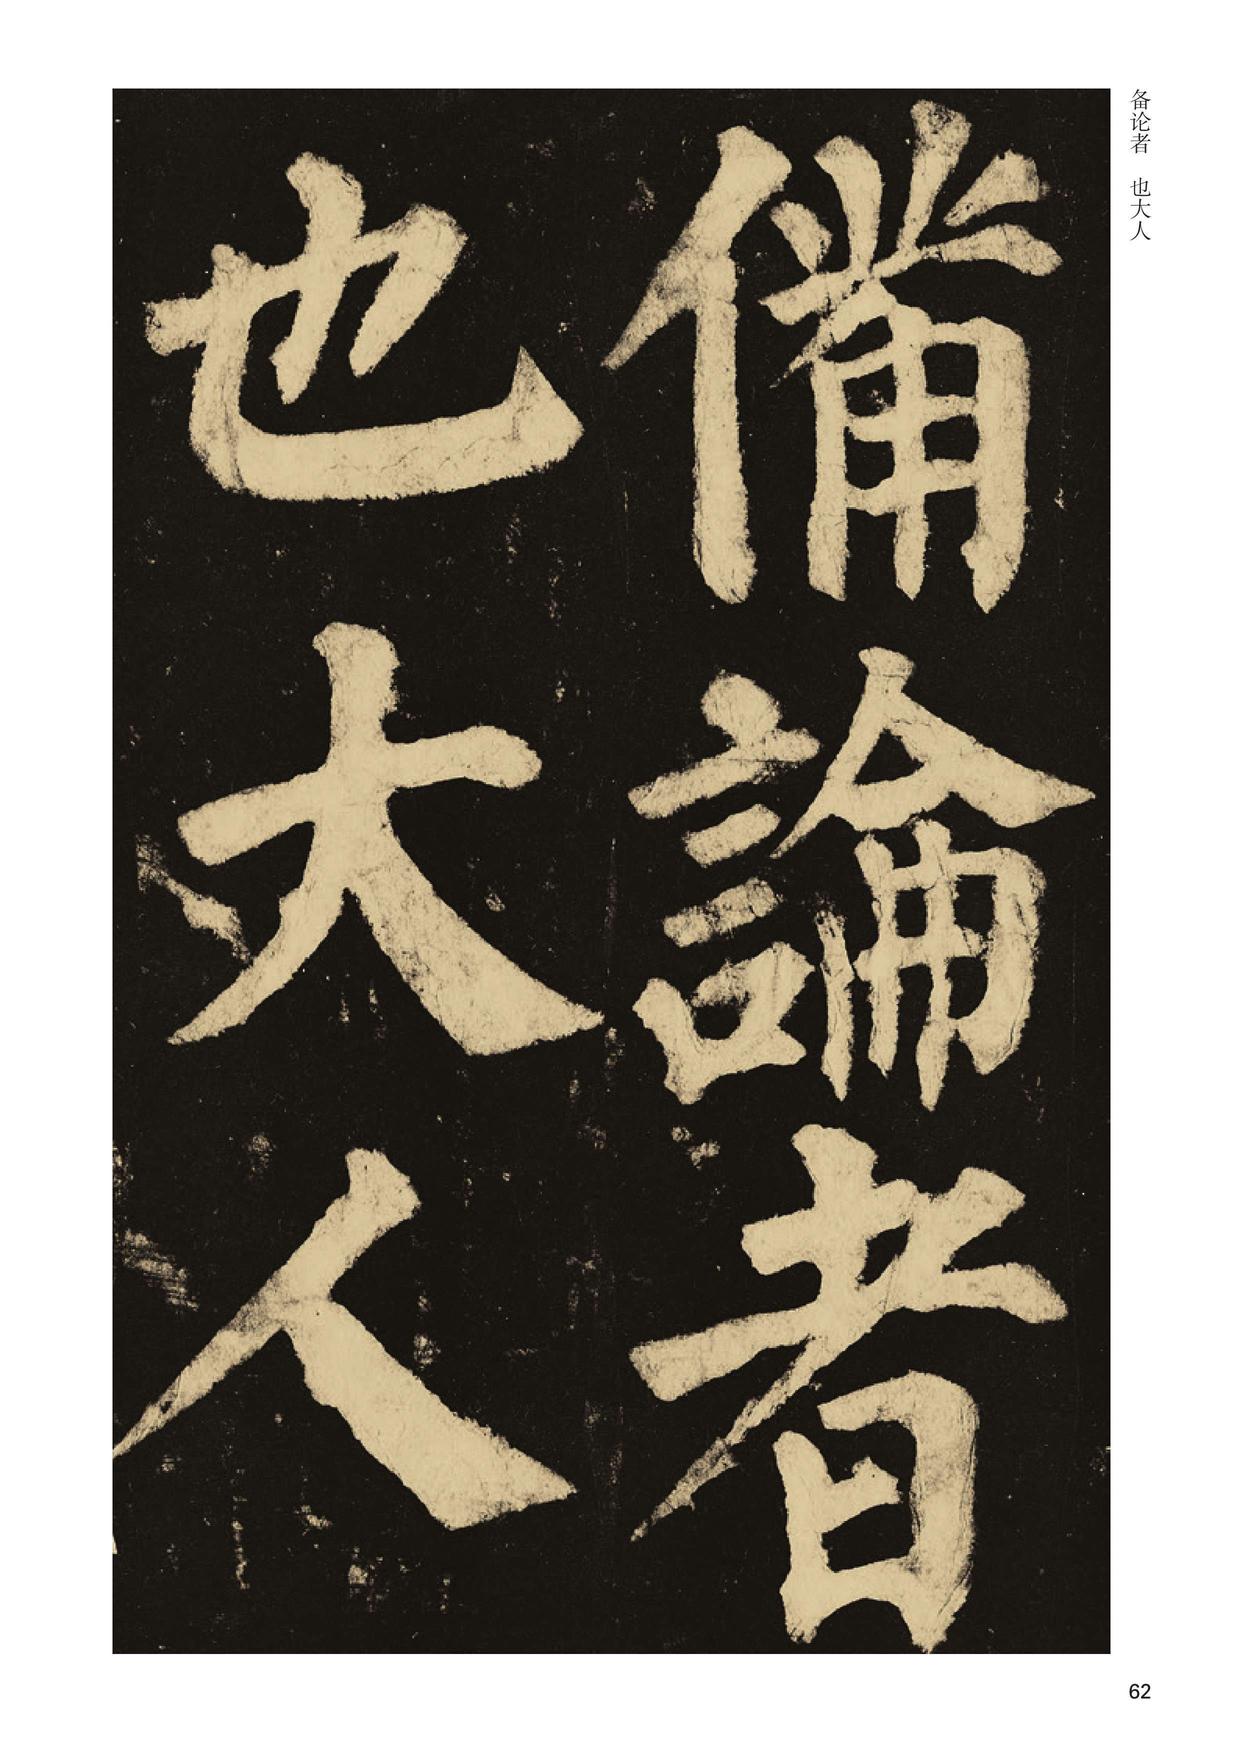 備論者
也大人
备论者　也大人
62